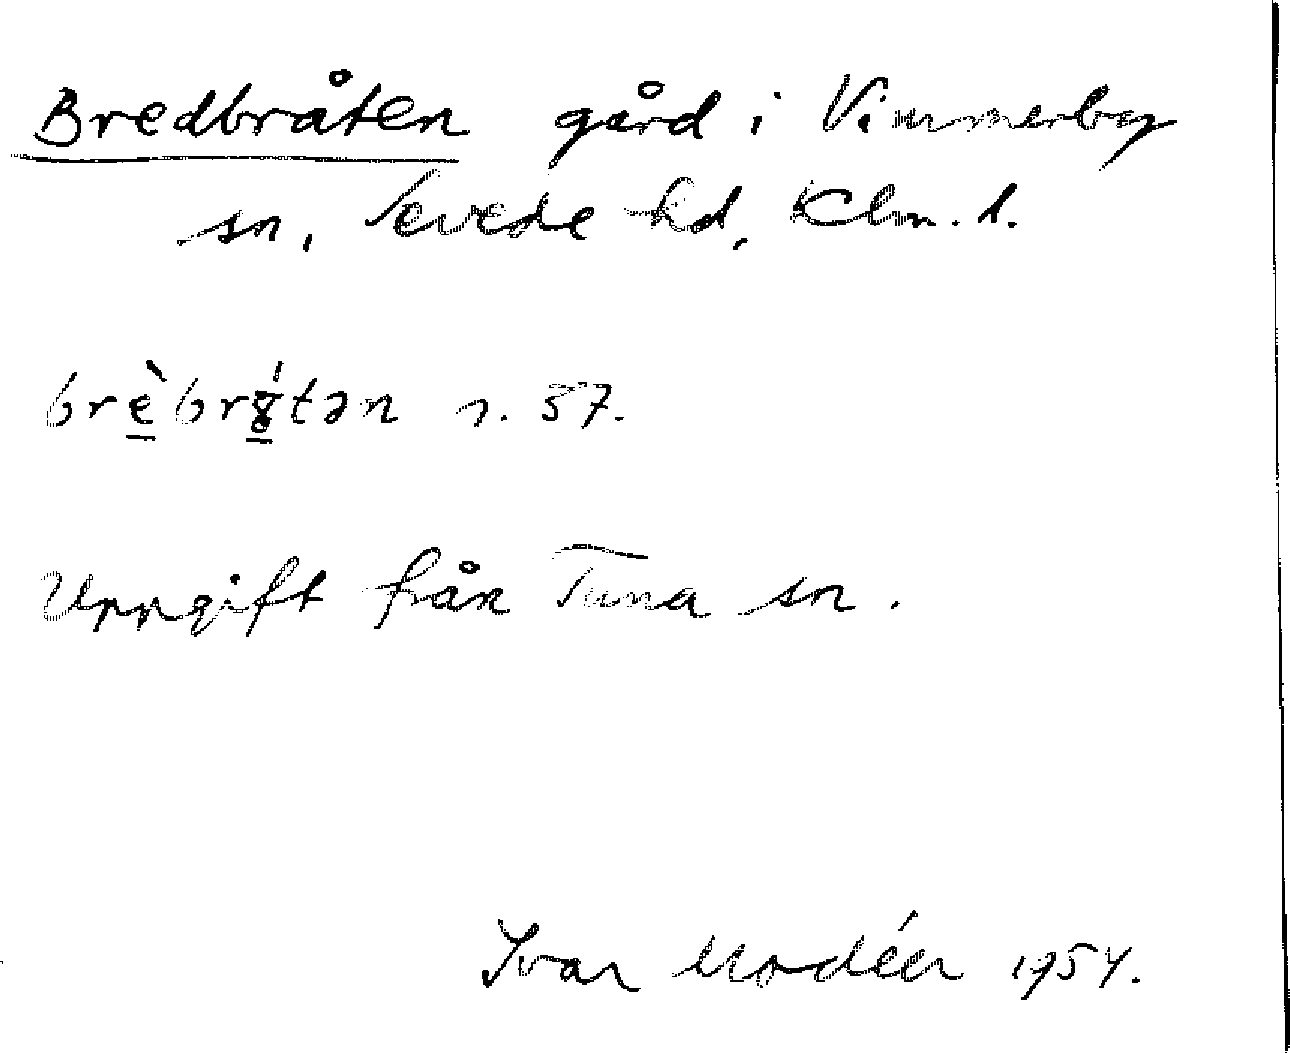 Bredbråten gård i Vimmerby
sn, Sevede hd, Klm. l.
brèbrɤ́tən s. 57.
Uppgift från Tuna sn.
Ivar Modéer 1954.